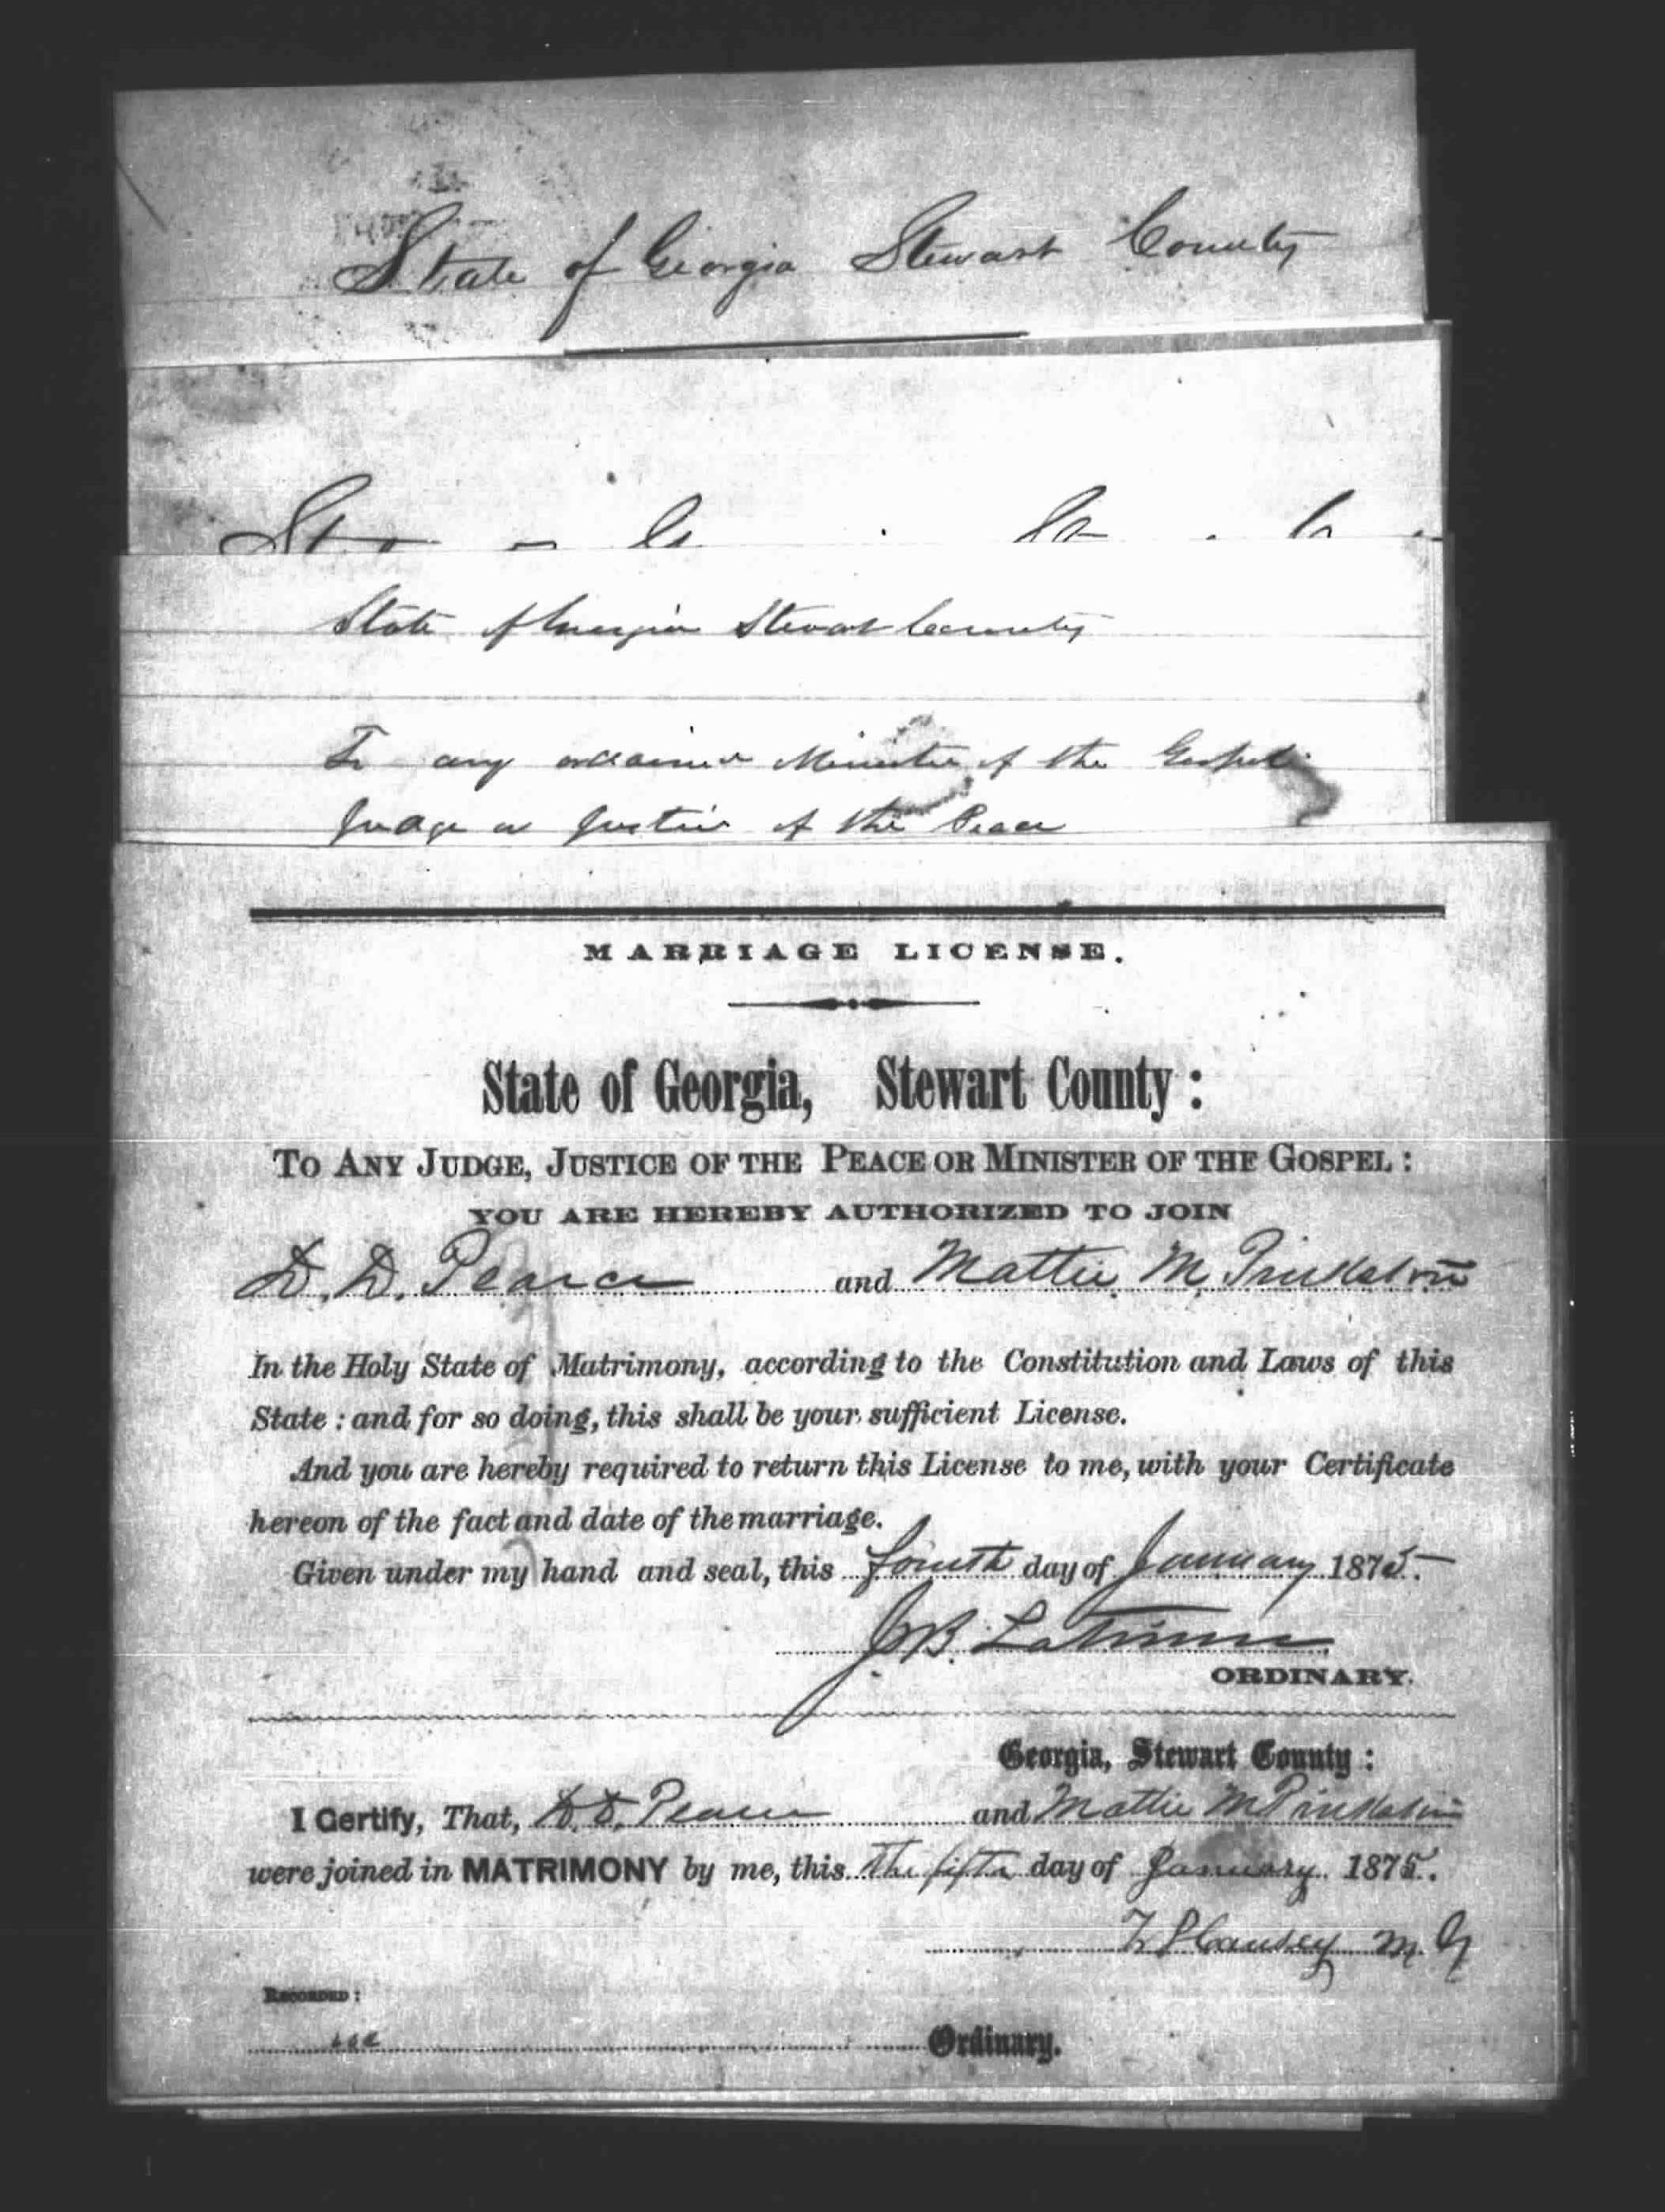 State of Georgia Stewart County
State of Georgia Stewart County
To any ordained Minister of the Gospel
Judge or Justice of the Peace
MARRIAGE LICENSE.
State of Georgia, Stewart County:
TO ANY JUDGE, JUSTICE OF THE PEACE OR MINISTER OF THE GOSPEL:
YOU ARE HEREBY AUTHORIZED TO JOIN
D. D. Pearce and Mattie M. Pinkston
In the Holy State of Matrimony, according to the Constitution and Laws of this
State: and for so doing, this shall be your sufficient License.
And you are hereby required to return this License to me, with your Certificate
hereon of the fact and date of the marriage.
Given under my hand and seal, this fourth day of January 1875.
J. B. Latimer
ORDINARY.
Georgia, Stewart County:
I Certify, That, D. D. Pearce and Mattie M Pinkston
were joined in MATRIMONY by me, this The fifth day of January 1875.
Causey M. G
RECORDED:
Ordinary.